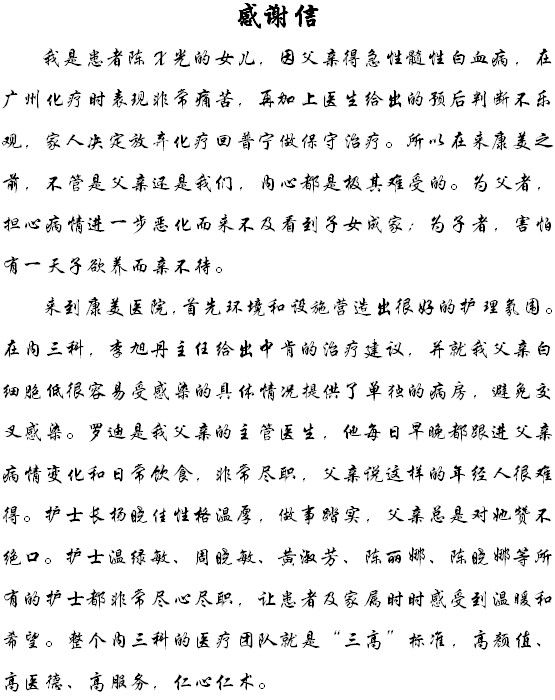 感谢信
我是患者陈X光的女儿，因父亲得急性髓性白血病，在
广州化疗时表现非常痛苦，再加上医生给出的预后判断不乐
观，家人决定放弃化疗回普宁做保守治疗。所以在来康美之
前，不管是父亲还是我们，内心都是极其难受的。为父者，
担心病情进一步恶化而来不及看到子女成家；为子者，害怕
有一天子欲养而亲不待。
来到康美医院，首先环境和设施营造出很好的护理氛围。
在内三科，李旭丹主任给出中肯的治疗建议，并就我父亲白
细胞低很容易受感染的具体情况提供了单独的病房，避免交
叉感染。罗迪是我父亲的主管医生，他每日早晚都跟进父亲
病情变化和日常饮食，非常尽职，父亲说这样的年经人很难
得。护士长杨晓佳性格温厚，做事踏实，父亲总是对她赞不
绝口。护士温绿敏、周晓敏、黄淑芳、陈丽娜、陈晓娜等所
有的护士都非常尽心尽职，让患者及家属时时感受到温暖和
希望。整个内三科的医疗团队就是“三高”标准，高颜值、
高医德、高服务，仁心仁术。